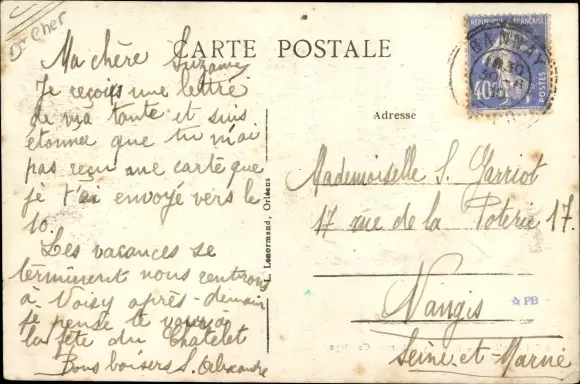 Dt Cher
CARTE POSTALE
RÉPUBLIQUE FRANÇAISE
POSTES
40c
Ma chère Suzanne
Je reçois une lettre
de ma tante et suis
étonné que tu n'ai
pas reçu une carte que
je t'ai envoyé vers le
10.
Les vacances se
terminent nous rentrons
à Noisy après-demain
je pense te voir à
la fête du Châtelet
Bons baisers S. Alexandre
L. Lenormand, Orléans
Adresse
Mademoiselle S. Garriot
17 rue de la Poterie 17.
Nangis
Seine-et-Marne
PB